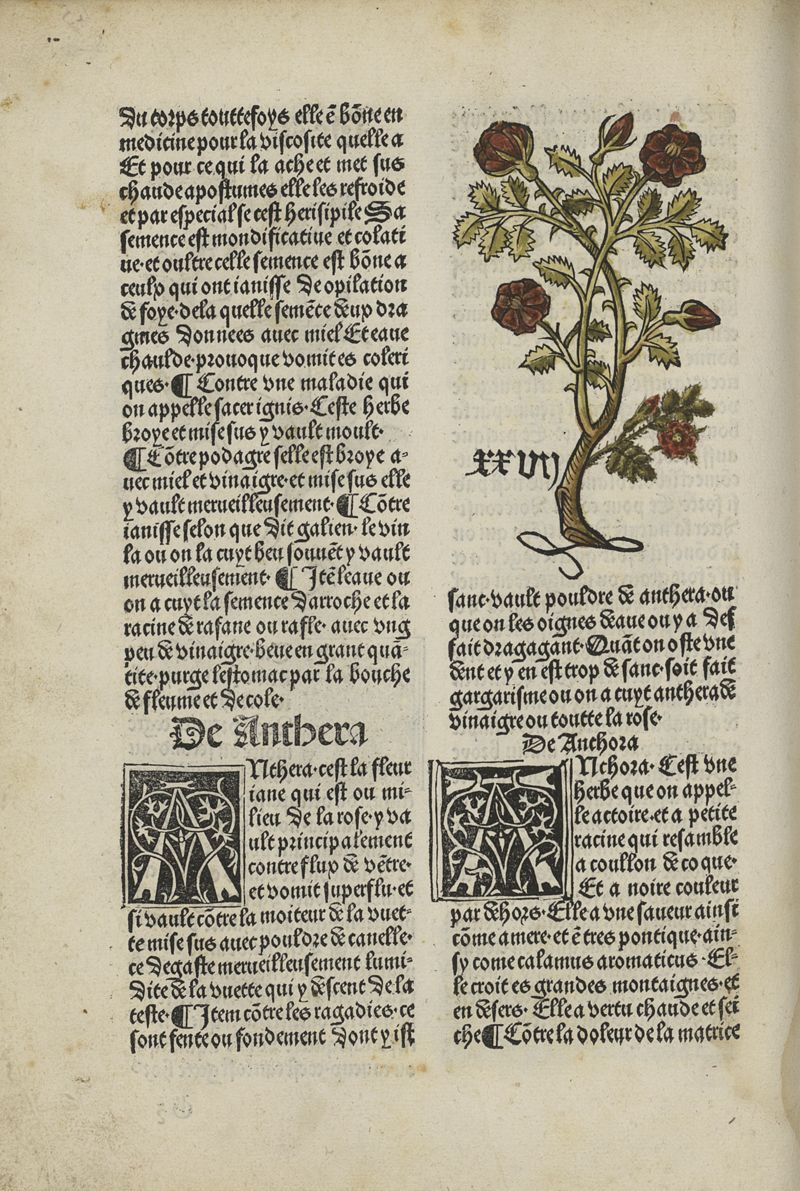 Du corps touttefoys elle ē bōne en
medicine pour la viscosite quelle a
Et pour ce qui la ache et met sus
chaude apostumes elle les refroide
et par especial se cest herisipile Sa
semence est mondificatiue et colati
ue·et oultre celle semence est bōne a
ceulx qui ont ianisse De opilation
de foye·de la quelle semēce deux dra
gmes Donnees auec miel Et eaue
chaulde·prouoque vomites coleri
ques·¶ Contre vne maladie qui
on appelle sacer ignis·Ceste herbe
broye et mise sus y vault moult·
¶Cōtre podagre selle est broye a-
uec miel et vinaigre·et mise sus elle
y vault merueilleusement·¶Cōtre
ianisse selon que Dit galien·le vin
la ou on la cuyt beu souuēt y vault
merueilleusement·¶ Itē leaue ou
on a cuyt la semence Darroche et la
racine de rafane ou rafle· auec vng
peu de vinaigre·beue en grant quā-
tite·purge lestomac par la bouche
de fleume et De cole·
De Anthera
ANthera·cest la fleur
iane qui est ou mi-
lieu De la rose·y va
ult principalement
contre flux de vētre·
et vomit superflu·et
si vault cōtre la moiteur de la vuet-
te mise sus auec pouldre de canelle·
ce Degaste merueilleusement lumi-
Dite de la vuette qui y descent De la
teste·¶Item cōtre les ragadies·ce
sont fente ou fondement Dont y ist
xxvij
sanc·vault pouldre de anthera·ou
que on les oignes deaue ou y a Des
fait dragagant·Quāt on oste vne
dent et y en est trop de sanc·soit fait
gargarisme ou on a cuyt anthera de
vinaigre ou toutte la rose·
De Anthora
ANchora· Cest vne
herbe que on appel-
le actoire·et a petite
racine qui resamble
a coullon de coque·
Et a noire couleur
par dehors·Elle a vne saueur ainsi
cōme amere·et ē tres pontique·ain-
sy come calamus aromaticus·El-
le croit es grandes montaignes·et
en desers· Elle a vertu chaude et sei
che¶Cōtre la doleur de la matrice